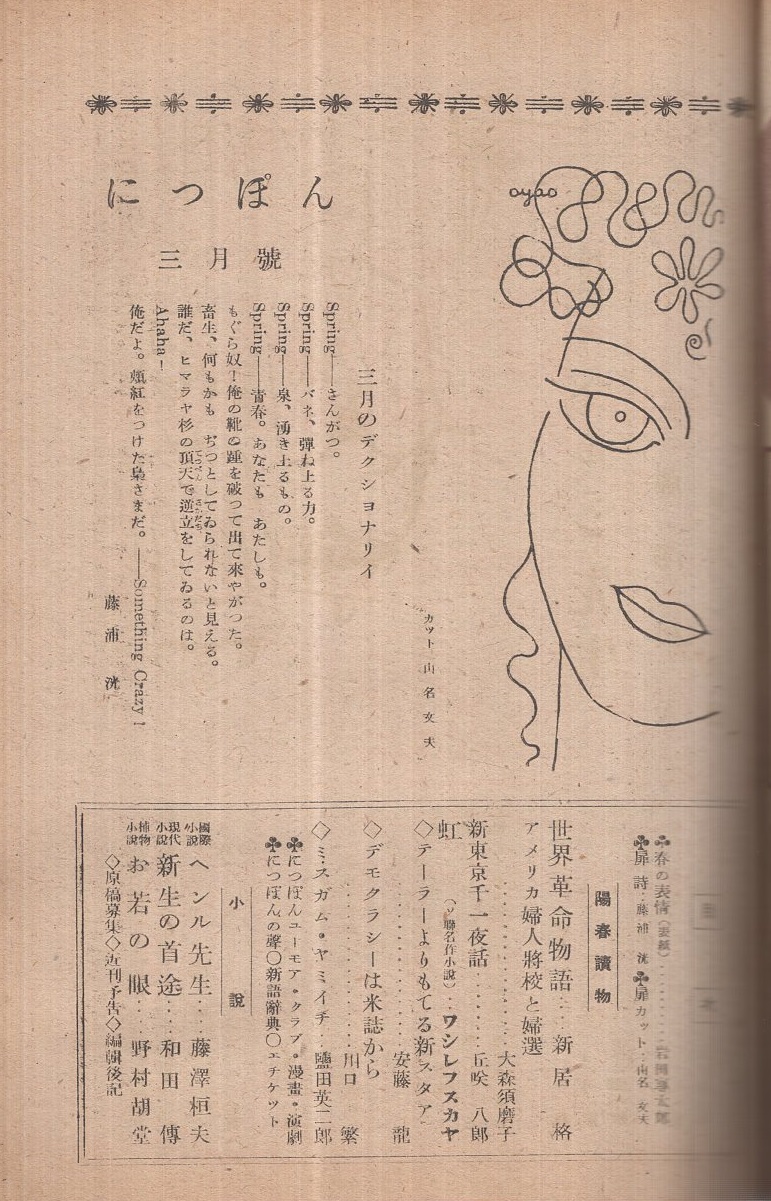 につぽん
三月號
oyao
三月のデクシヨナリイ
Spring――さんがつ。
Spring――バネ、彈ね上る力。
Spring――泉、湧き上るもの。
Spring――青春。あなたも　あたしも。
もぐら奴！俺の靴の踵を破つて出て來やがつた。
畜生、何もかも　ぢつとしてゐられないと見える。
誰だ、ヒマラヤ杉の頂天で逆立をしてゐるのは。
Ahaha！
俺だよ。頰紅をつけた梟さまだ。――Something Crazy！
藤浦　洸
カツト　山名文夫
♣春の表情（表紙）
♣扉詩・藤浦　洸♣扉カツト・山名文夫
陽春讀物
世界革命物語…新居　格
アメリカ婦人將校と婦選
大森須磨子
新東京千一夜話…丘咲八郎
虹（ソ聯名作小説）…ワシレフスカヤ
◇テーラーよりもてる新スタア
安藤　龍
◇デモクラシーは米誌から
川口　繁
◇ミスガム・ヤミイチ…鹽田英二郎
♣につぽんユーモア・クラブ・漫畫・演劇
♣につぽんの聲〇新語辭典〇エチケツト
小説
國際小説　ヘンル先生…藤澤桓夫
現代小説　新生の首途…和田　傳
捕物小説　お若の眼…野村胡堂
◇原稿募集◇近刊予告◇編輯後記